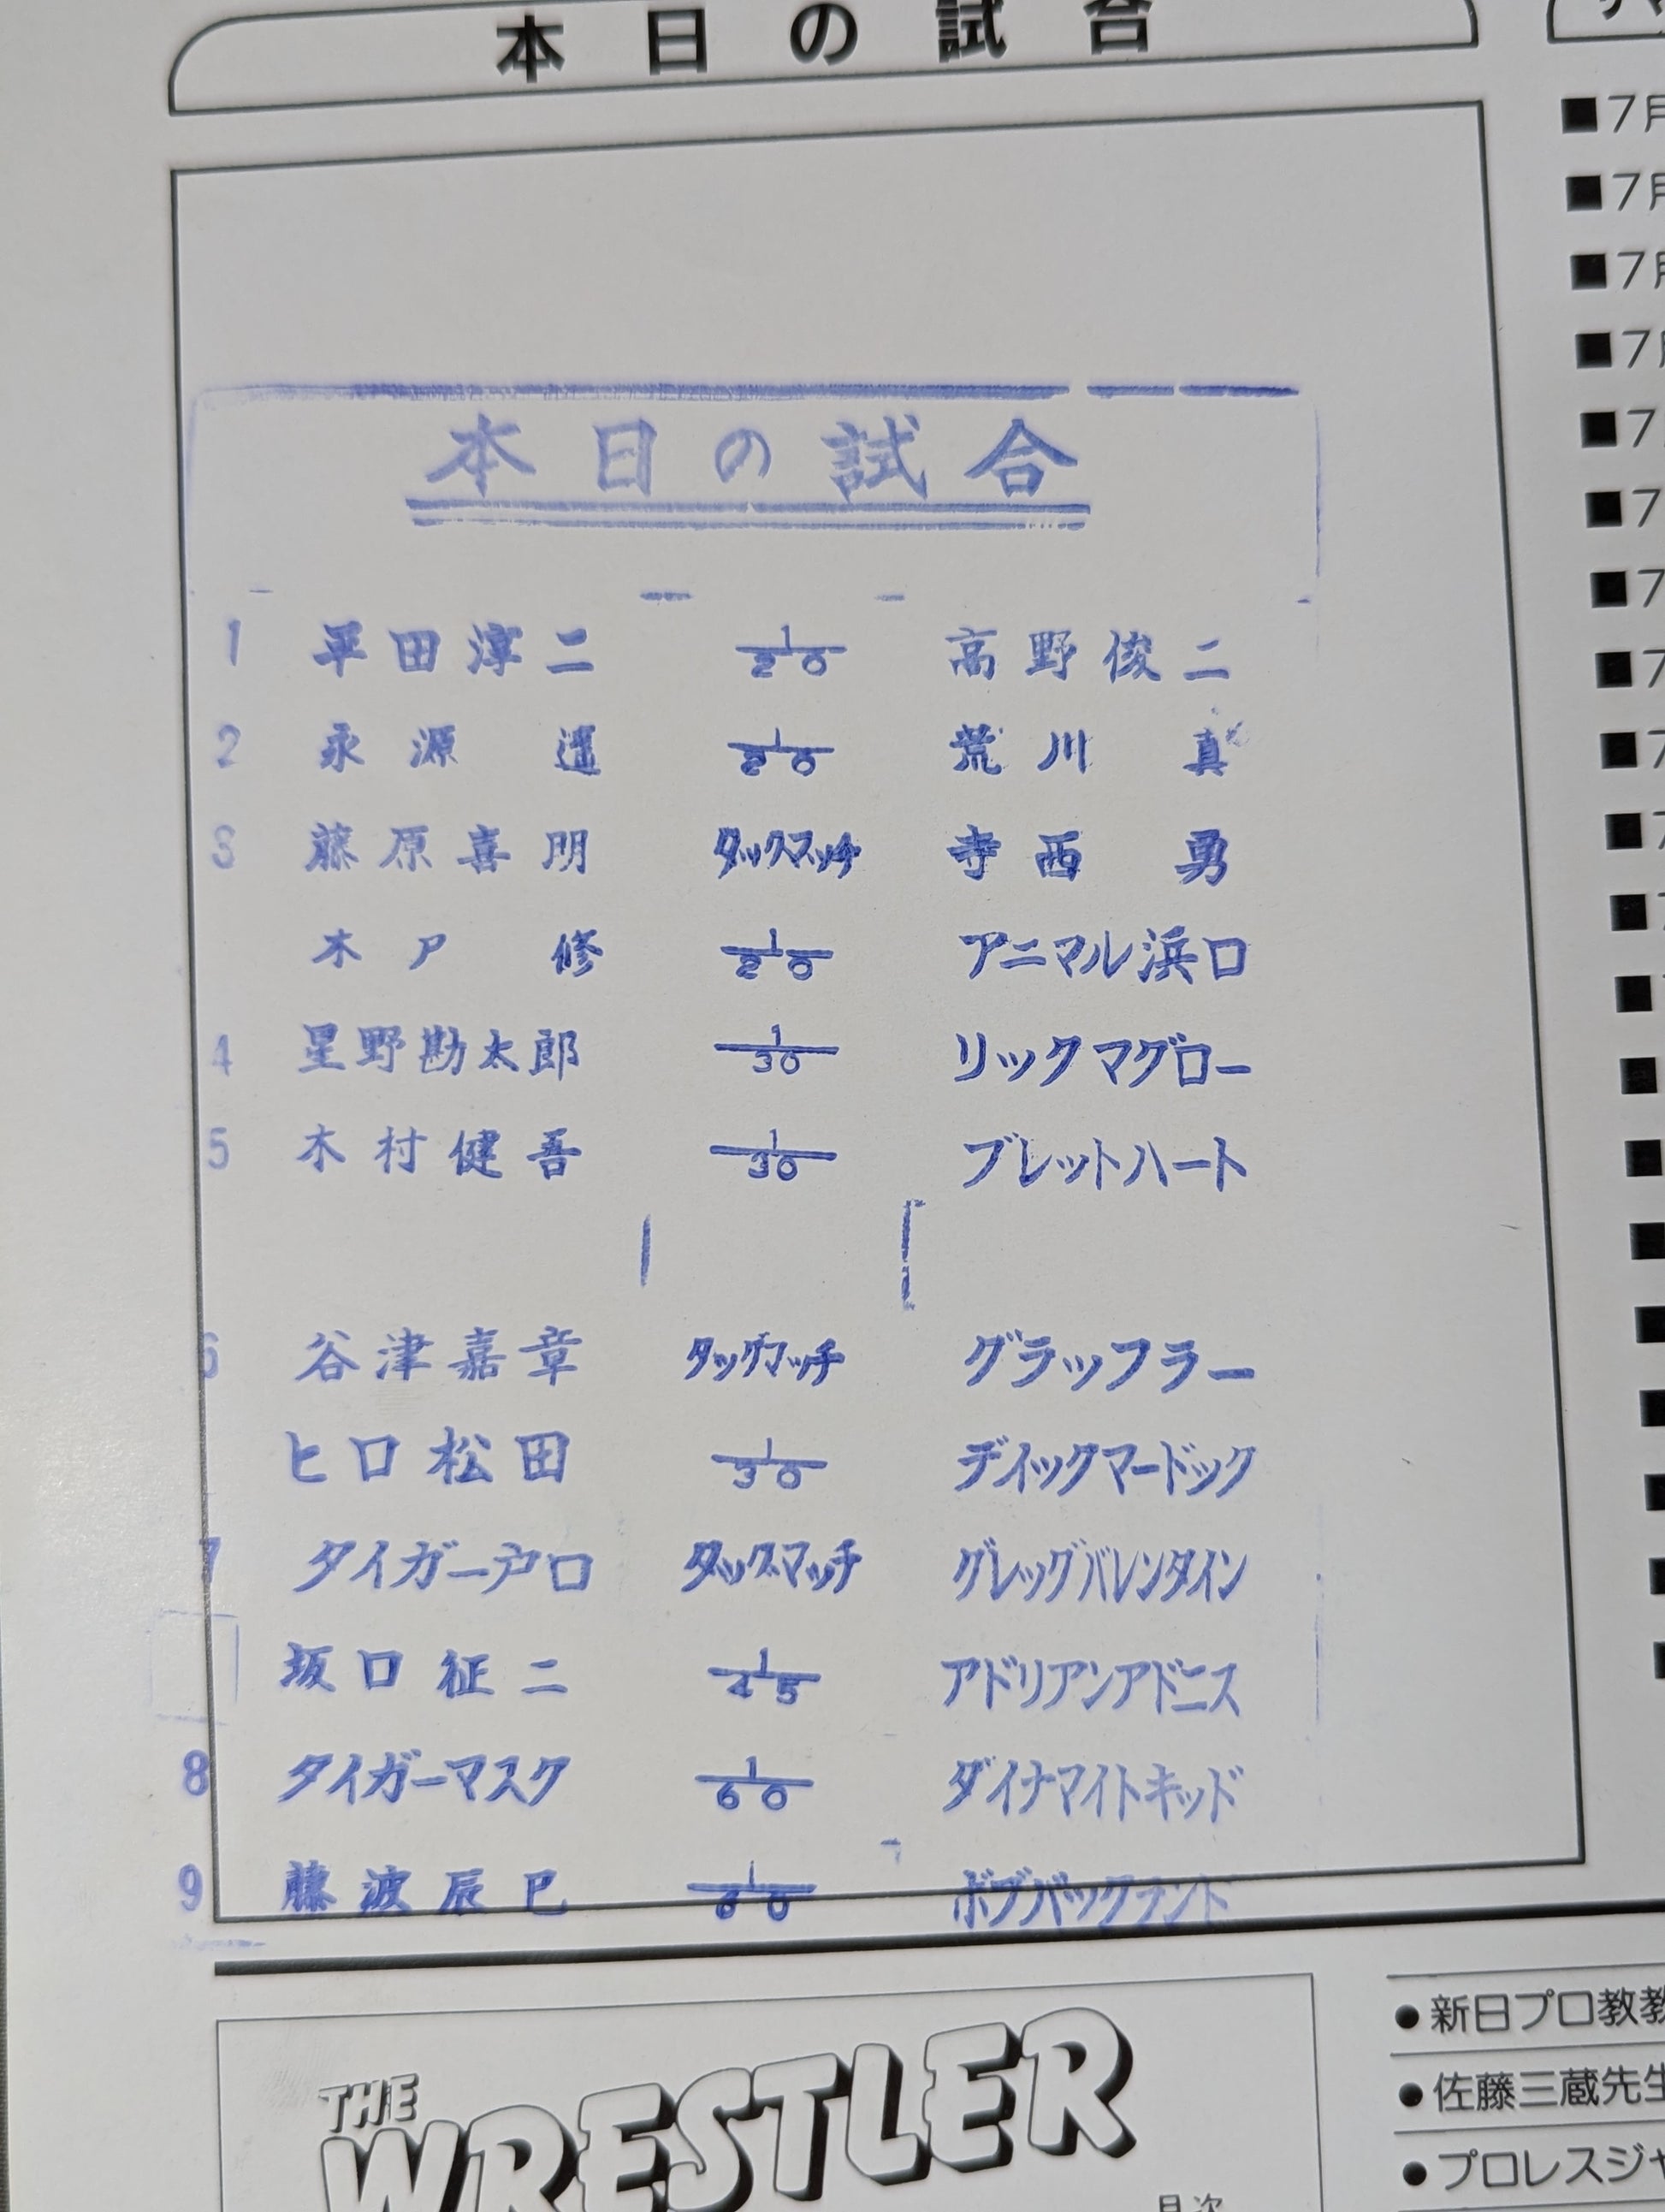 本日の試合
本日の試合
1 平田淳二 1/20 高野俊二
2 永源遥 1/20 荒川真
3 藤原喜明 タッグマッチ 寺西勇
木戸修 1/20 アニマル浜口
4 星野勘太郎 1/30 リックマグロー
5 木村健吾 1/30 ブレットハート
6 谷津嘉章 タッグマッチ グラップラー
ヒロ松田 1/30 ディックマードック
7 タイガー戸口 タッグマッチ グレッグバレンタイン
坂口征二 1/45 アドリアンアドニス
8 タイガーマスク 1/60 ダイナマイトキッド
9 藤波辰巳 1/60 ボブバックランド
THE
WRESTLER
目次
■7月
■7月
■7月
■7月
■7
■7
■7
■7
■7
●新日プロ教
●佐藤三蔵先生
●プロレスジャ